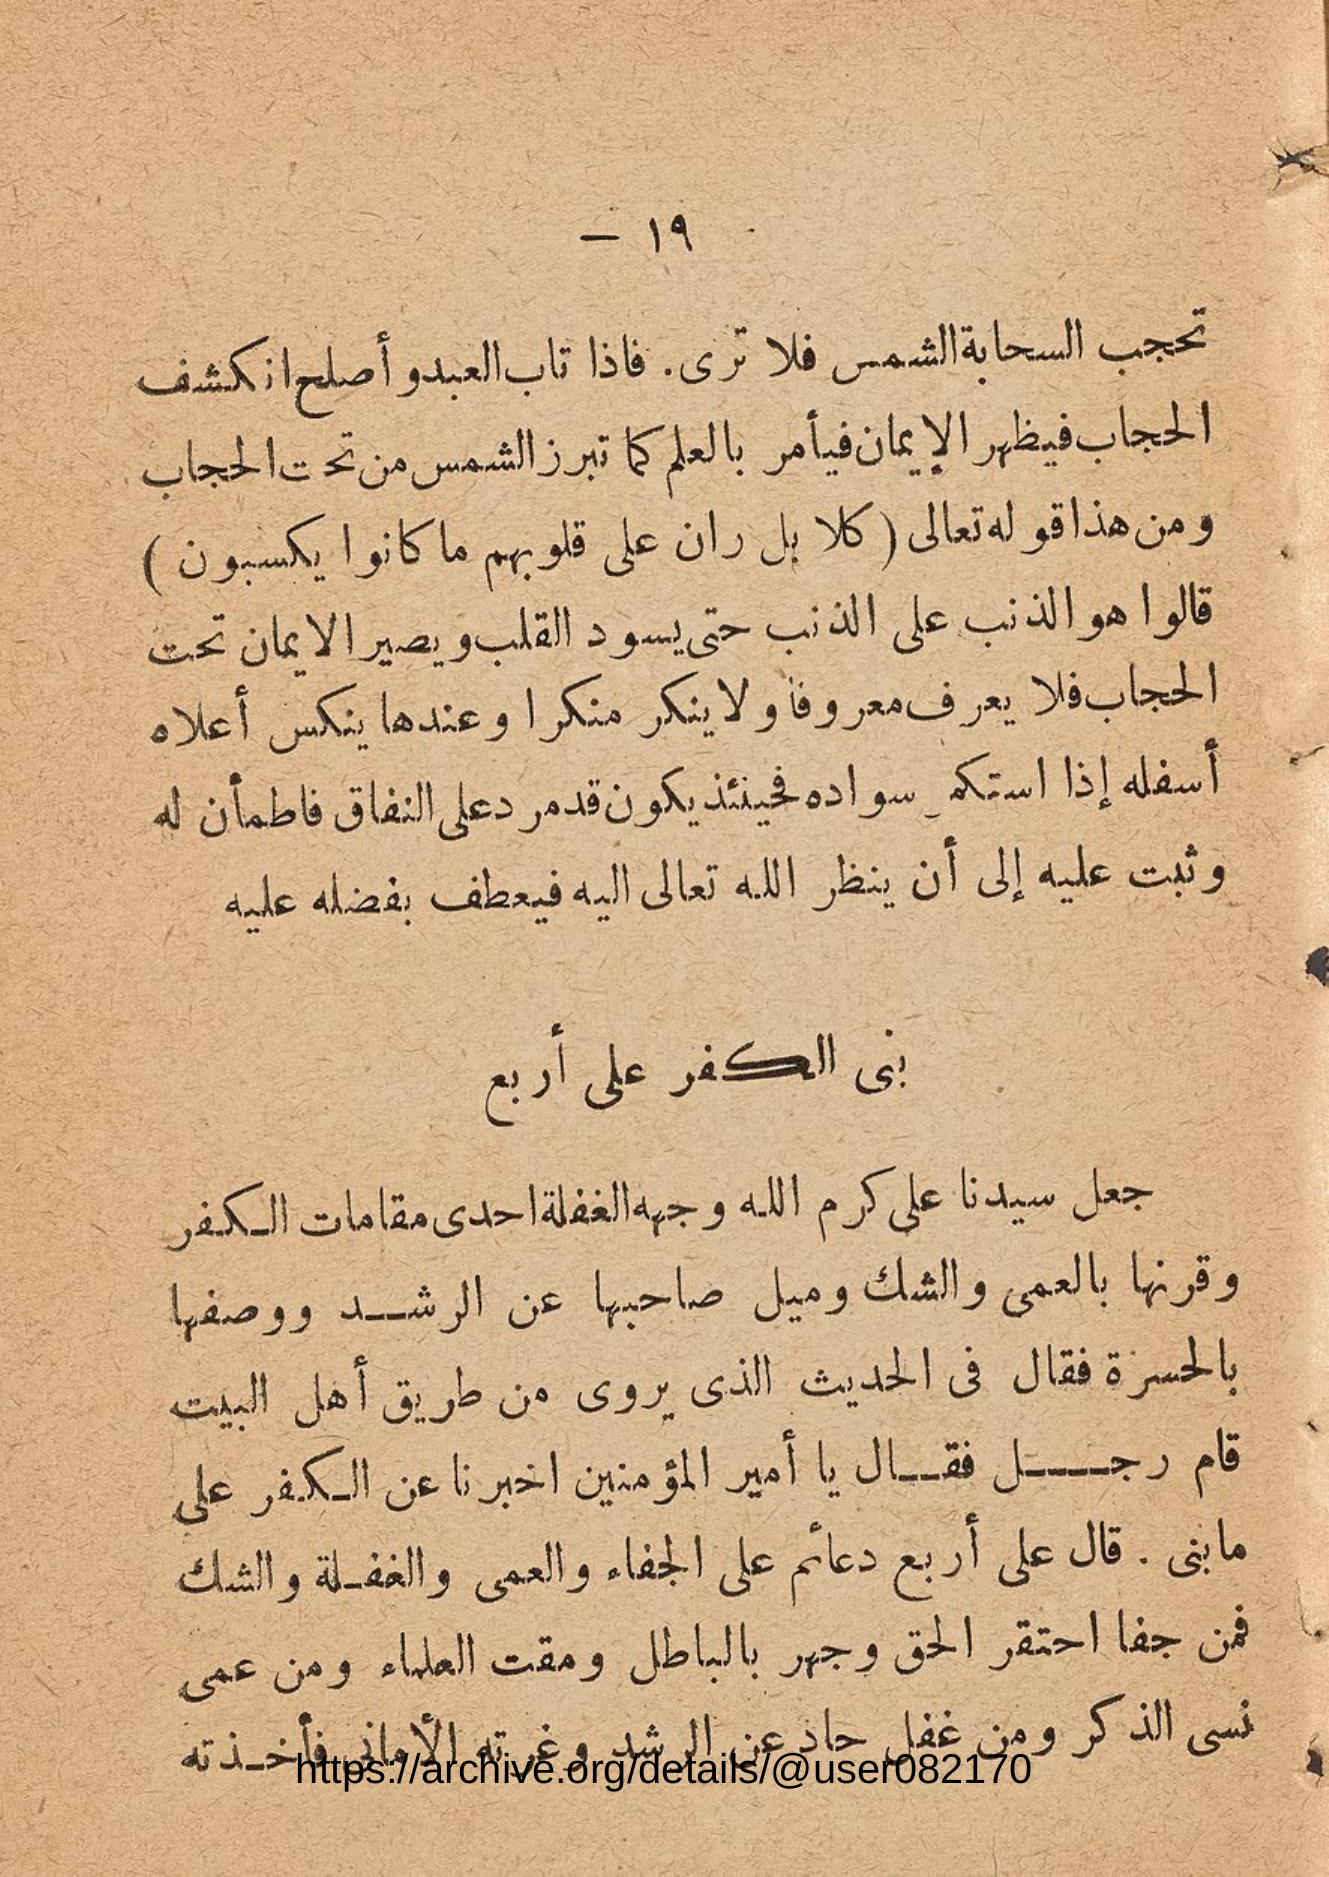 ١٩ —
تحجب السحابة الشمس فلا ترى. فاذا تاب العبد وأصلح انكشف
الحجاب فيظهر الإيمان فيأمر بالعلم كما تبرز الشمس من تحت الحجاب
ومن هذا قوله تعالى (كلا بل ران على قلوبهم ما كانوا يكسبون)
قالوا هو الذنب على الذنب حتى يسود القلب ويصير الايمان تحت
الحجاب فلا يعرف معروفا ولا ينكر منكرا وعندها ينكس أعلاه
أسفله إذا سواده فحينئذ يكون قد مرد على النفاق فاطمأن له
وثبت عليه إلى أن ينظر الله تعالى اليه فيعطف بفضله عليه
بنى الكفر على أربع
جعل سيدنا على كرم الله وجهه الغفلة احدى مقامات الكفر
وقرنها بالعمى والشك وميل صاحبها عن الرشد ووصفها
بالحسرة فقال فى الحديث الذى يروى من طريق أهل البيت
قام رجل فقال يا أمير المؤمنين اخبرنا عن الكفر على
ما بنى . قال على أربع دعائم على الجفاء والعمى والغفلة والشك
فمن جفا احتقر الحق وجهر بالباطل ومقت العلماء ومن عمى
نسى الذكر ومن غفل حاد عن الرشد وغرته الأمانى فأخذته
https://archive.org/details/@user082170